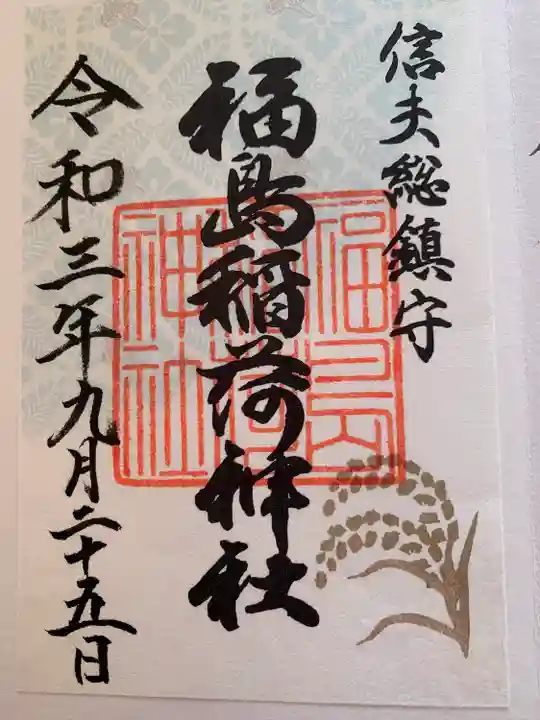 信夫総鎮守
福島稲荷神社
福島稲荷神社
令和三年九月二十五日